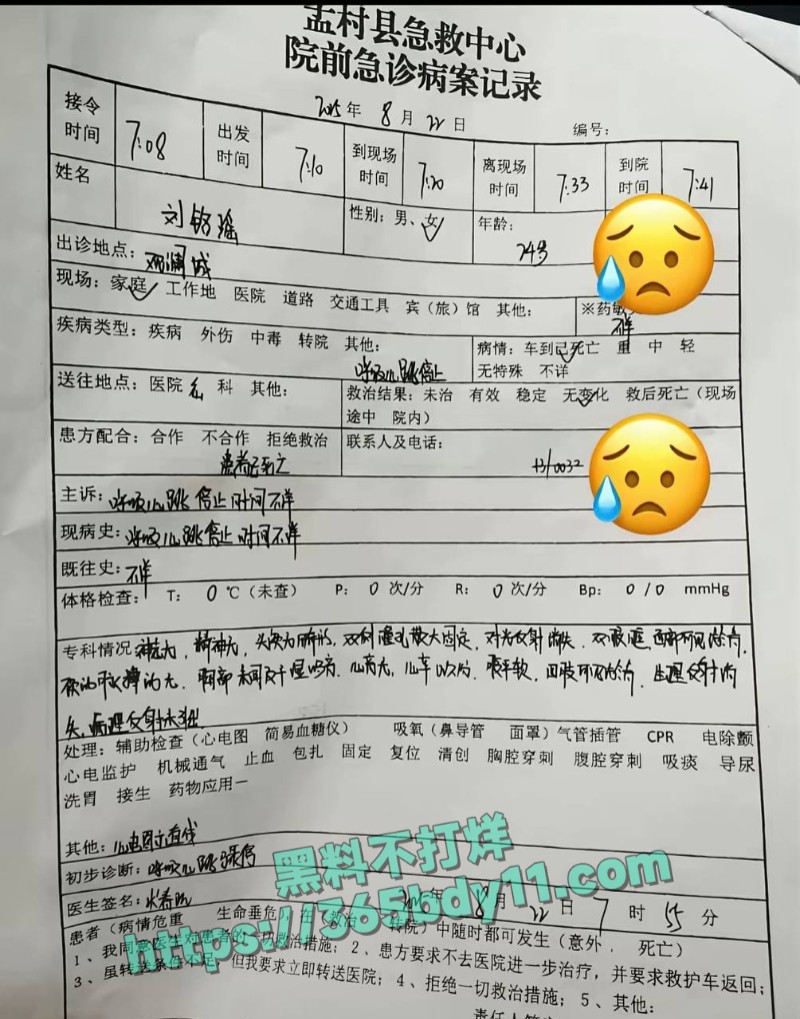 孟村县急救中心
院前急诊病案记录
2025年 8月 22日 编号：
接令时间 7:08 出发时间 7:10 到现场时间 7:20 离现场时间 7:33 到院时间 7:41
姓名 性别：男、女 年龄：
出诊地点： 观澜城
现场：家庭 工作地 医院 道路 交通工具 宾（旅）馆 其他： ※药敏 不详
疾病类型：疾病 外伤 中毒 转院 其他： 呼吸心跳停止 病情：车到已死亡 重 中 轻 无特殊 不详
送往地点：医院 科 其他： 救治结果：未治 有效 稳定 无变化 救后死亡（现场 途中 院内）
患方配合：合作 不合作 拒绝救治 患者已死亡 联系人及电话：
主诉：呼吸心跳停止时间不详
现病史：呼吸心跳停止时间不详
既往史：不详
体格检查： T： 0 ℃（未查） P： 0 次/分 R： 0 次/分 Bp： 0 / 0 mmHg
专科情况 双侧瞳孔散大固定，对光反射消失，
生理反射消
失，病理反射未引出
处理：辅助检查（心电图 简易血糖仪） 吸氧（鼻导管 面罩）气管插管 CPR 电除颤
心电监护 机械通气 止血 包扎 固定 复位 清创 胸腔穿刺 腹腔穿刺 吸痰 导尿
洗胃 接生 药物应用一
其他：心电图示直线
初步诊断：呼吸心跳骤停
医生签名： 2025年 8月 22日 7时 55分
患者（病情危重 生命垂危）在（救治 转院）中随时都可发生（意外、 死亡）
1、我同意医生对患者的一切救治措施；2、患方要求不去医院进一步治疗，并要求救护车返回；
3、虽转送条件不足，但我要求立即转送医院；4、拒绝一切救治措施；5、其他：
黑料不打烊
https://365bdy11.com